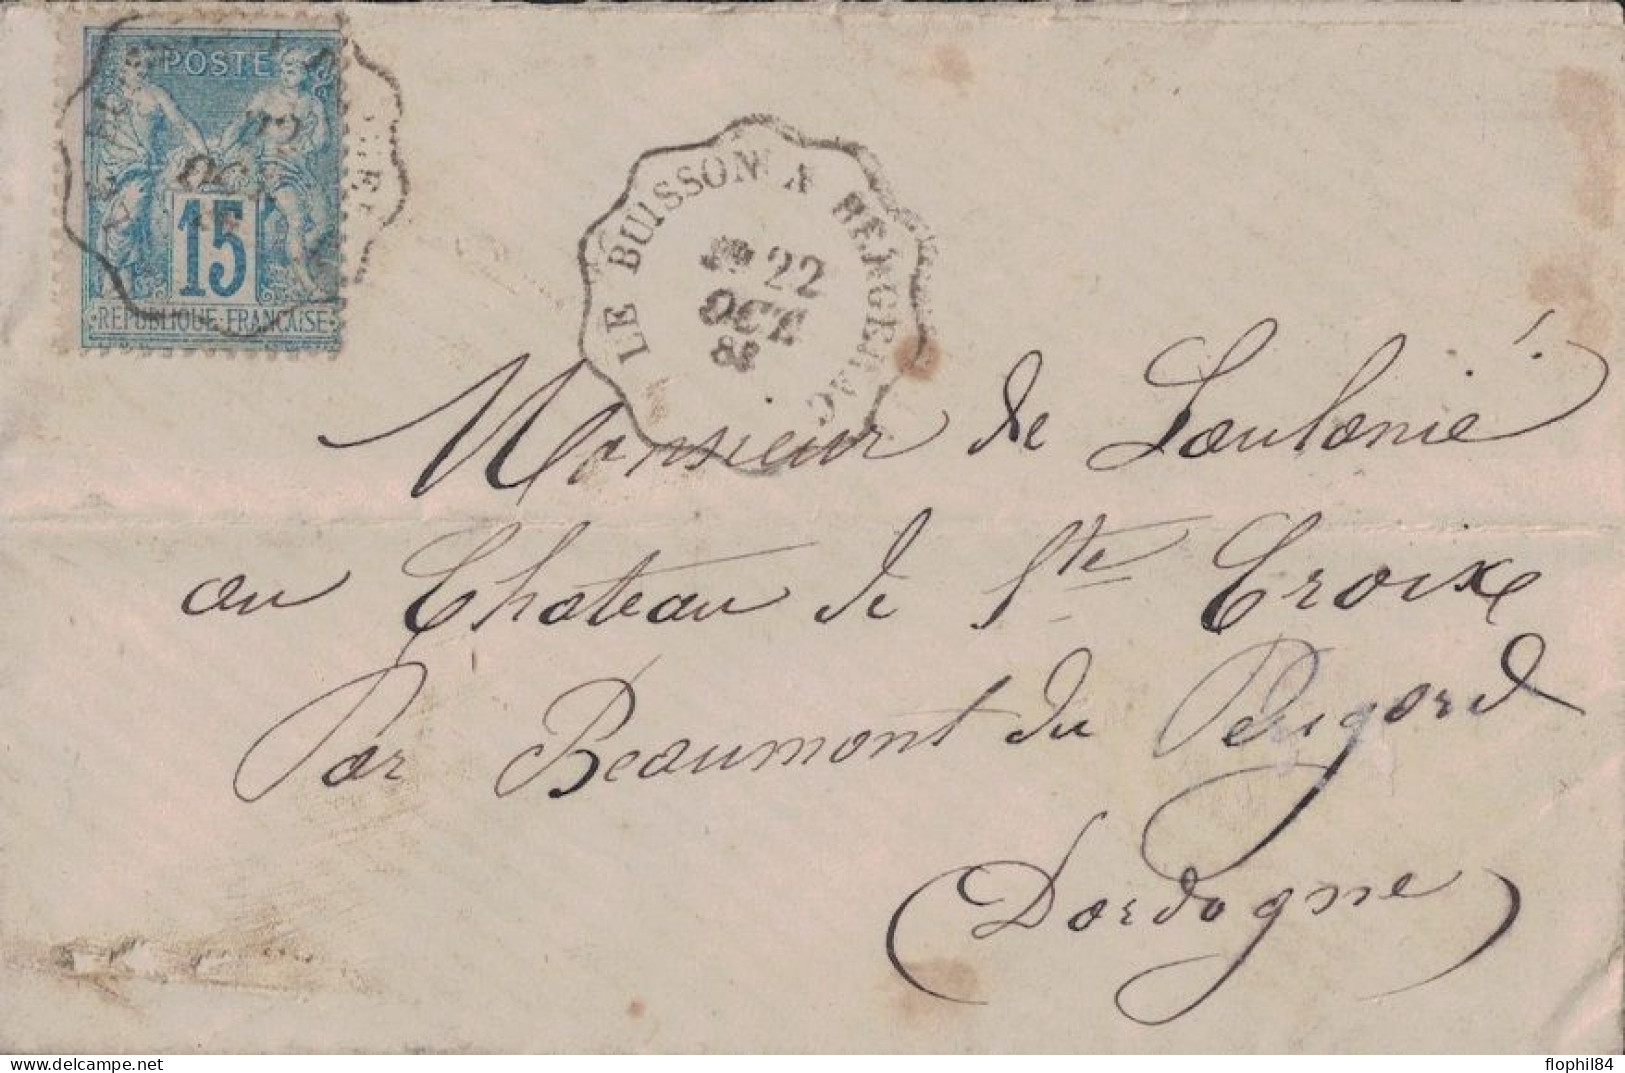 POSTE
15
RÉPUBLIQUE FRANÇAISE
22
OCT
LE BUISSON A BERGERAC
22
OCT
88
Monsieur de Loulanié
au Château de Ste Croix
Par Beaumont du Périgord
(Dordogne)
flophil84